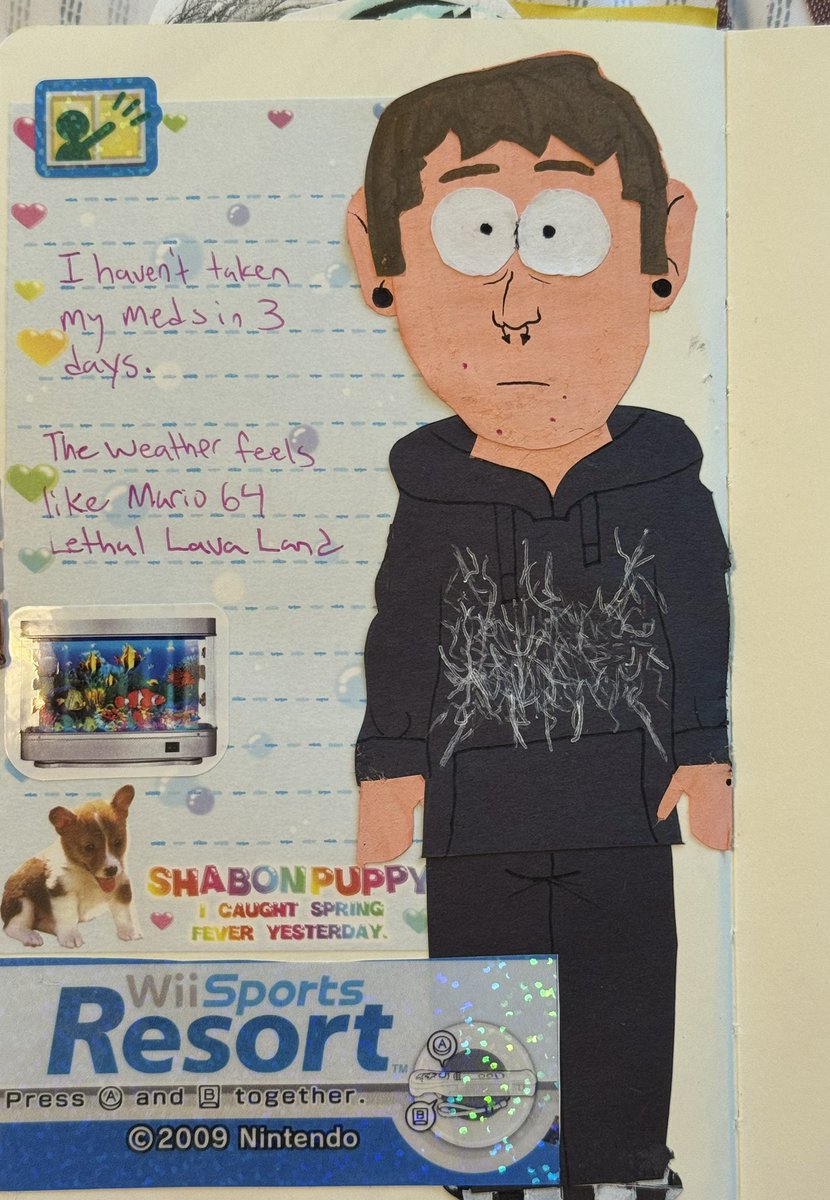 I haven't taken
my meds in 3
days.
The weather feels
like Mario 64
Lethal Lava Land
SHABON PUPPY
I CAUGHT SPRING
FEVER YESTERDAY.
WiiSports
Resort™
Press Ⓐ and B together.
A
B
©2009 Nintendo